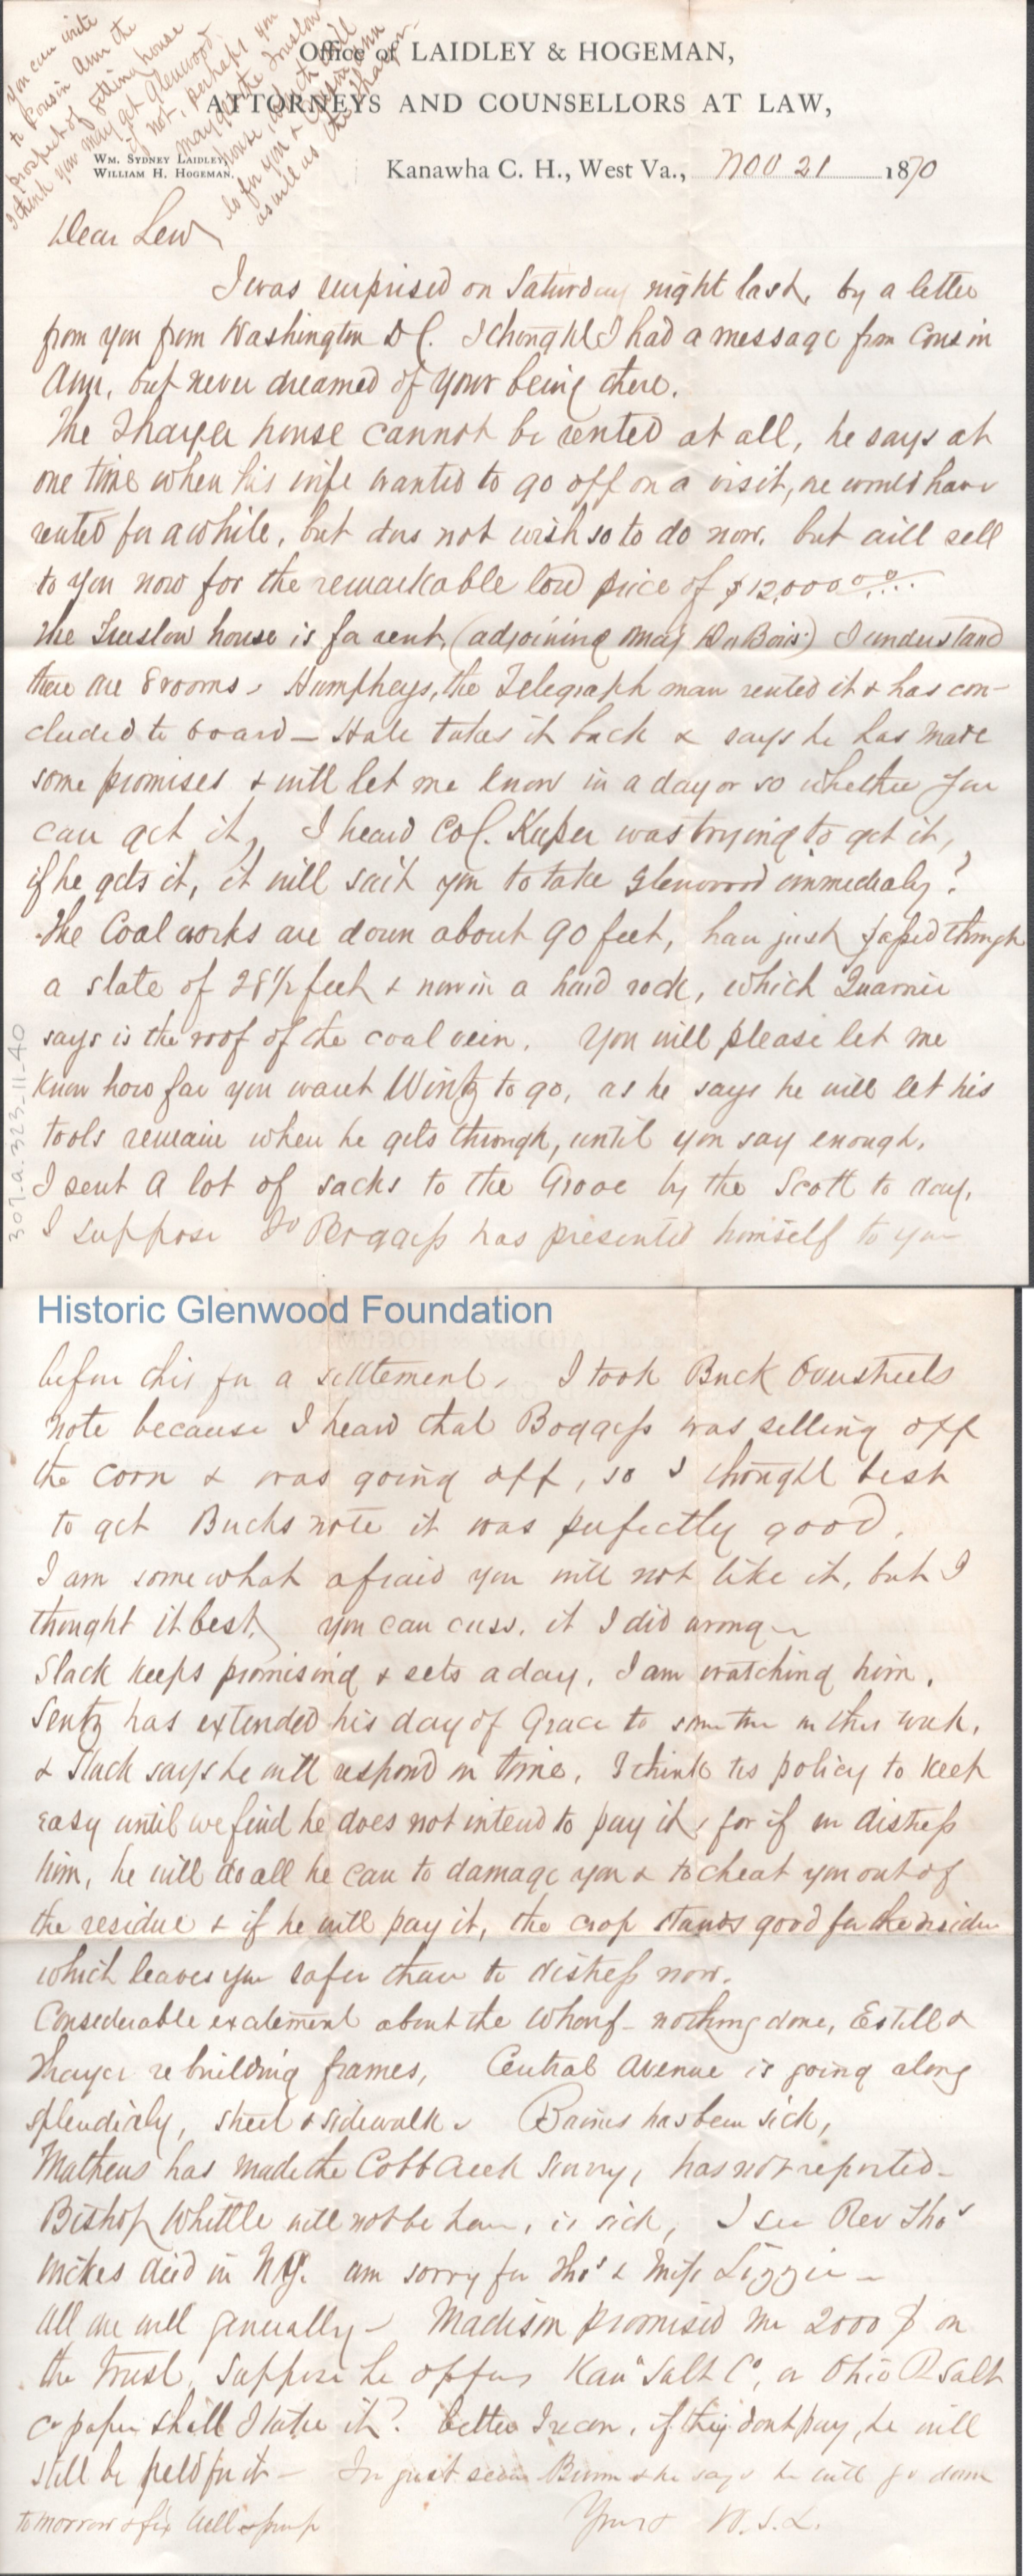 you can write
to Cousin Ann the
prospect of getting house
I think you may get Glenwood.
if not, perhaps you
may get the Truslow
house, which will
do for you & Cousin Ann
as well as the Thayer.
Office of LAIDLEY & HOGEMAN,
ATTORNEYS AND COUNSELLORS AT LAW,
WM. SYDNEY LAIDLEY,
WILLIAM H. HOGEMAN.
Kanawha C. H., West Va., Nov 21 1870
Dear Lew
I was surprised on Saturday night last, by a letter
from you from Washington D C. I thought I had a message from Cousin
Ann, but never dreamed of your being there.
The Thayer house cannot be rented at all, he says at
one time when his wife wanted to go off on a visit, he would have
rented for a while, but does not wish so to do now. but will sell
to you now for the remarkable low price of $12,000 00
The Truslow house is for rent, (adjoining Maj DuBois) I understand
there are 8 rooms, Humphreys, the Telegraph man rented it & has con-
cluded to board — Hale takes it back & says he has made
some promises & will let me know in a day or so whether you
can get it, I heard Col. was trying to get it,
if he gets it, it will suit you to take Glenwood immediatly?
The Coal works are down about 90 feet, have just passed through
a slate of 28 1/2 feet & now in a hard rock, which Quarrier
says is the roof of the coal vein. You will please let me
know how far you want Wintz to go, as he says he will let his
tools remain when he gets through, until you say enough.
I sent a lot of sacks to the Grove by the Scott to day.
I suppose Boggess has presented himself to you
307-a.323-11-40
Historic Glenwood Foundation
before this for a settlement, I took Buck Overstreets
note because I heard that Boggess was selling off
the corn & was going off, so I thought best
to get Bucks note it was perfectly good.
I am somewhat afraid you will not like it, but I
thought it best, you can cuss, if I did wrong
Slack keeps promising & sets a day, I am watching him.
Sentz has extended his day of Grace to some time in this week,
& Slack says he will respond in time. I think tis policy to keep
easy until we find he does not intend to pay it, for if we distress
him, he will do all he can to damage you & to cheat you out of
the residue & if he will pay it, the crop stands good for the residue
which leaves you safer than to distress now.
Considerable excitement about the Wharf — nothing done, Estill &
Thayer rebuilding frames, Central Avenue is going along
splendidly, street & sidewalk. Baines has been sick,
Mathews has made the Cobb Creek Survey, has not reported —
Bishop Whittle will not be here, is sick, I see Rev Thos
Mickes died in N.Y. am sorry for Thos & Miss Lizzie —
All are well generally — Madison promised me 2000 $ on
the trust, suppose he offers Kana Salt Co, or Ohio R Salt
Co paper shall I take it? better I recon, if they dont pay, he will
still be held for it — just seen & he says he will go down
tomorrow & fix well & pump
Yours W. S. L.